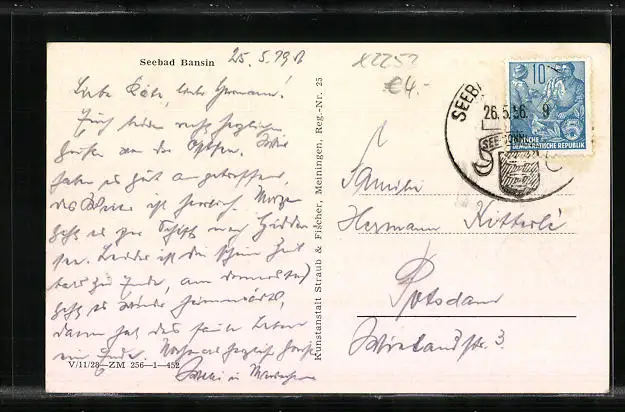 Seebad Bansin
25. 5. 19
Liebe Käte, lieber Hermann!
Euch beiden recht herzliche
Grüße von der Ostsee. Wir
haben es gut angetroffen,
das Wetter ist herrlich. Morgen
geht es per Schiff nach Hidden
see. Leider ist die schöne Zeit
bald zu Ende, am donnerstag
geht es wieder heimwärts,
dann hat das faule Leben
ein Ende. Nochmals herzliche Grüße
V/11/28—ZM 256—1—452
Kunstanstalt Straub & Fischer, Meiningen, Reg.-Nr. 25
€4,-
SEEBA
26.5.56. 9
10
5
DEMOKRATISCHE REPUBLIK
Familie
Hermann Kitterlé
Potsdam
Wielandstr. 3